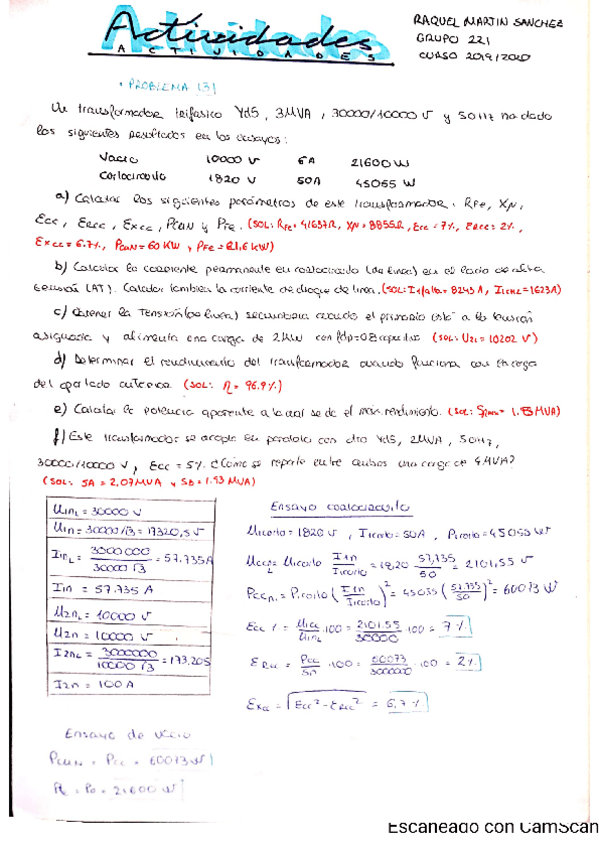 Actividades
ACTIVIDADES
RAQUEL MARTIN SANCHEZ
GRUPO 221
CURSO 2019/2020
• PROBLEMA 131
Un transformador trifasico Yd5, 3MVA, 30000/10000 V y 50Hz ha dado
los siguientes resultados en los ensayos:
Vacio 10000 V 6A 21600 W
Cortocircuito 1820 V 50A 45055 W
a) Calcular los siguientes parámetros de este transformador: RFe, Xμ,
Ecc, ERcc, EXcc, PCuN y PFe. (SOL: RFe= 41687Ω, Xμ= 8855Ω, Ecc = 7%, ERcc= 2%,
EXcc= 6.7%, PCuN= 60 KW y PFe= 21,6 KW)
b) Calcular la corriente permanente en cortocircuito (de linea) en el lado de alta
tensión (AT). Calcular tambien la corriente de choque de linea. (SOL: I1falta= 8245 A, I1chL= 1623A)
c) Obtener la tensión (de linea) secundaria cuando el primario está a la tensión
asignada y alimenta una carga de 2MW con fdp=0.8 capacitivo (SOL: U2L= 10202 V)
d) Determinar el rendimiento del transformador cuando funciona con la carga
del apartado anterior (SOL: η= 96.9%)
e) Calcular la potencia aparente a la cual se da el máx rendimiento. (SOL: Sηmax= 1.8MVA)
f) Este transformador se acopla en paralelo con otro Yd5, 2MVA, 50Hz,
30000/10000 V, Ecc = 5%. ¿Cómo se reparte entre ambos una carga de 4MVA?
(SOL: SA = 2,07MVA y SB= 1.93 MVA)
U1nL = 30000 V
U1n = 30000/√3 = 17320,5 V
I1nL = 3000000 / 30000 √3 = 57.735A
I1n = 57.735 A
U2nL = 10000 V
U2n = 10000 V
I2nL = 3000000 / 10000 √3 = 173,205
I2n = 100 A
Ensayo de vacio
PCuN = Pcc = 60073 W
PFe = P0 = 21600 W
Ensayo cortocircuito
Ucorto = 1820 V, Icorto = 50A, Pcorto = 45055 W
UccnL = Ucorto I1n / I1corto = 1820 57,735 / 50 = 2101,55 V
Pccn = Pcorto (I1n / Icorto)² = 45055 (57.735 / 50)² = 60073 W
Ecc % = Ucc / U1nL · 100 = 2101.55 / 30000 · 100 = 7%
ERcc = Pcc / Sn · 100 = 60073 / 3000000 · 100 = 2%
EXcc = √Ecc² - ERcc² = 6,7%
Escaneado con CamScan